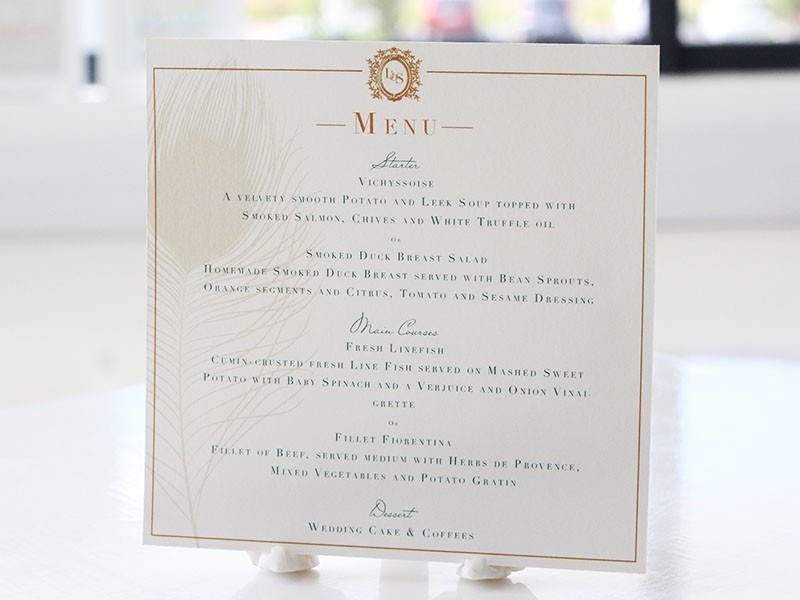 D&S
MENU
Starter
VICHYSSOISE
A VELVETY SMOOTH POTATO AND LEEK SOUP TOPPED WITH
SMOKED SALMON, CHIVES AND WHITE TRUFFLE OIL
OR
SMOKED DUCK BREAST SALAD
HOMEMADE SMOKED DUCK BREAST SERVED WITH BEAN SPROUTS,
ORANGE SEGMENTS AND CITRUS, TOMATO AND SESAME DRESSING
Main Courses
FRESH LINEFISH
CUMIN-CRUSTED FRESH LINE FISH SERVED ON MASHED SWEET
POTATO WITH BABY SPINACH AND A VERJUICE AND ONION VINAI-
GRETTE
OR
FILLET FIORENTINA
FILLET OF BEEF, SERVED MEDIUM WITH HERBS DE PROVENCE,
MIXED VEGETABLES AND POTATO GRATIN
Dessert
WEDDING CAKE & COFFEES